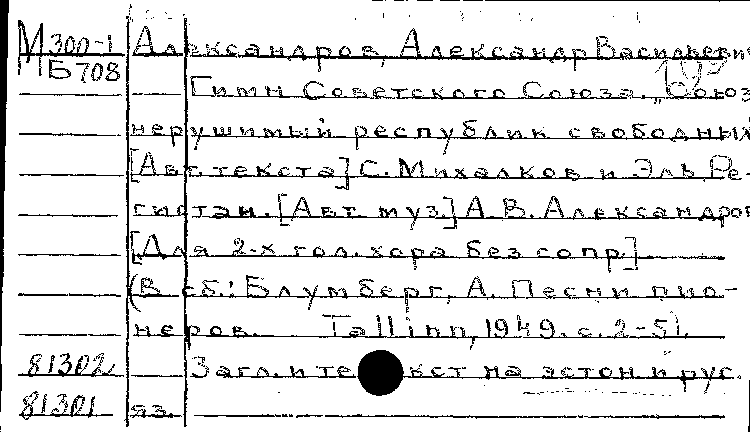 М300-1 Александров, Александр Васильевич
Б708
Гимн Советского Союза. „Союз
нерушимый республик свободных
[Авт. текста] С. Михалков и Эль Ре-
гистан. [Авт. муз.] А. В. Александров
[Для 2-х гол. хора без сопр.]
(В сб.: Блумберг, А. Песни пио-
неров. Tallinn, 1949. с. 2-5).
81302 Загл. и текст на эстон. и рус.
81301 яз.